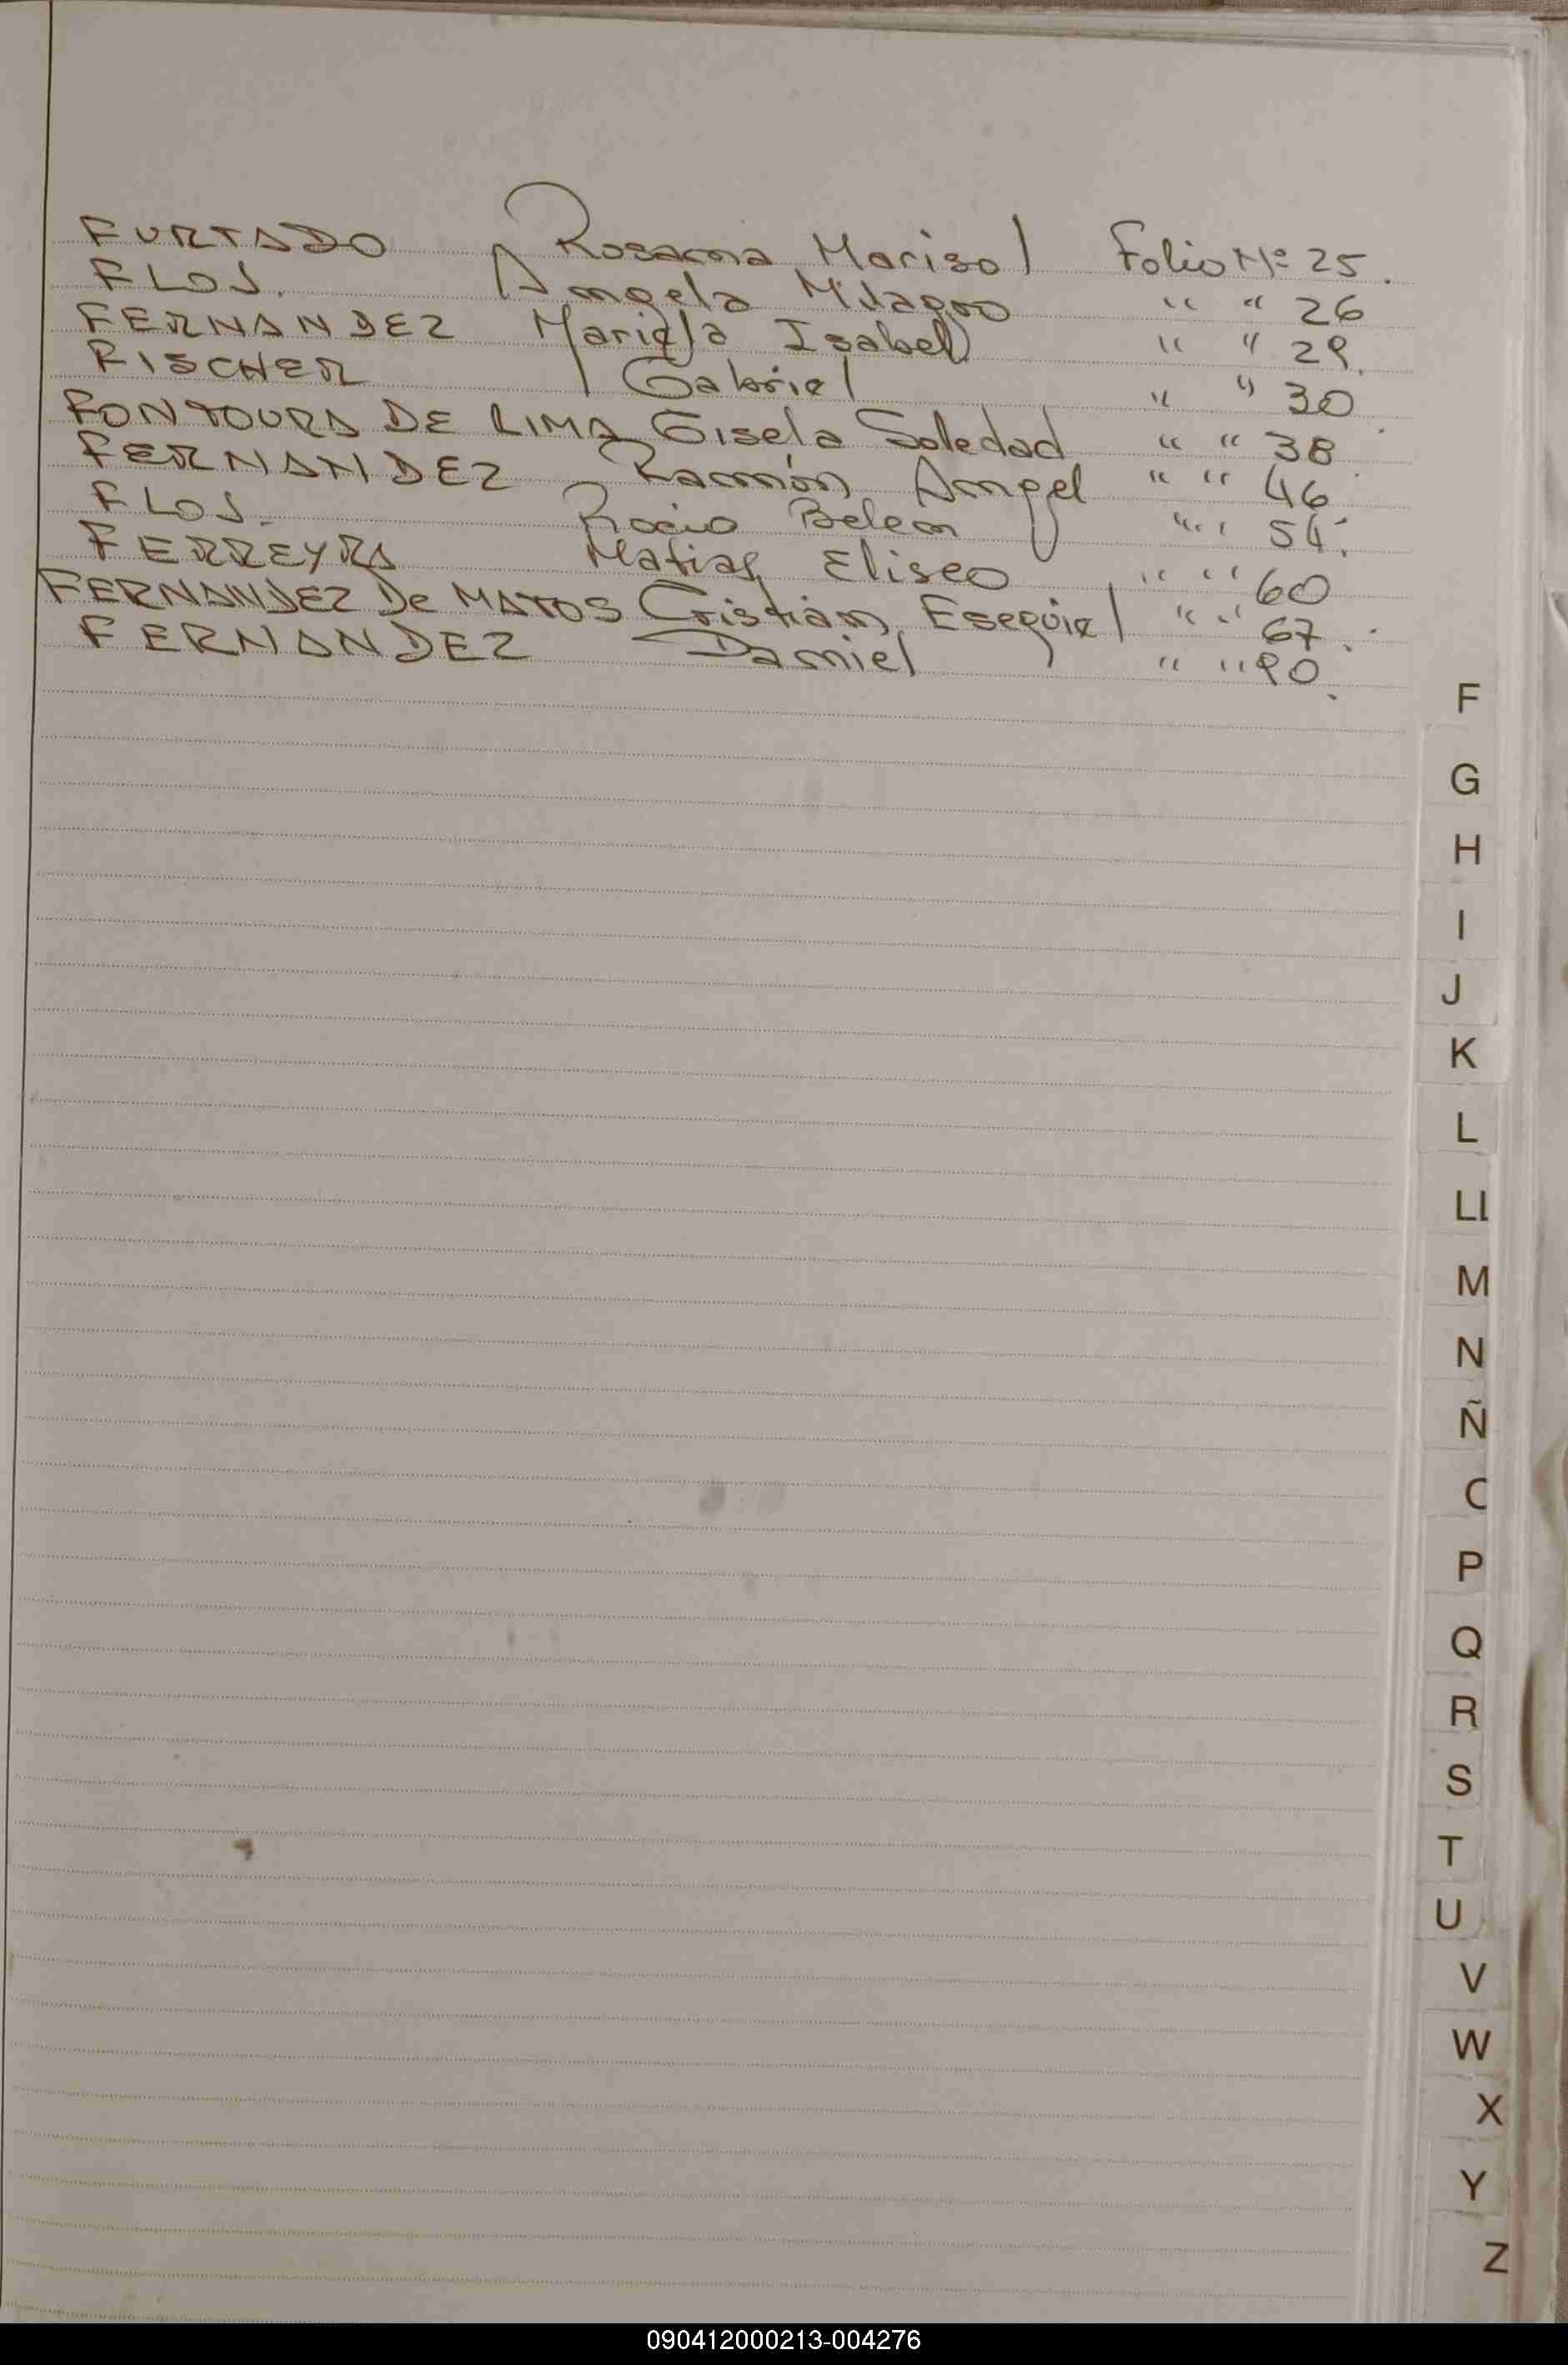 FURTADO Rosana Marisol Folio Nº 25.
FLOS. Angela Milagro " " 26
FERNANDEZ Mariela Isabel " " 29.
FISCHER Gabriel " " 30
FONTOURA DE LIMA Gisela Soledad " " 38
FERNANDEZ Ramón Angel " " 46
FLOS. Rocio Belen " " 54.
FERREYRA Matias Eliseo " " 60
FERNANDEZ De MATOS Cristian Esequiel " " 67.
FERNANDEZ Daniel " " 90.
F
G
H
I
J
K
L
LL
M
N
Ñ
O
P
Q
R
S
T
U
V
W
X
Y
Z
090412000213-004276